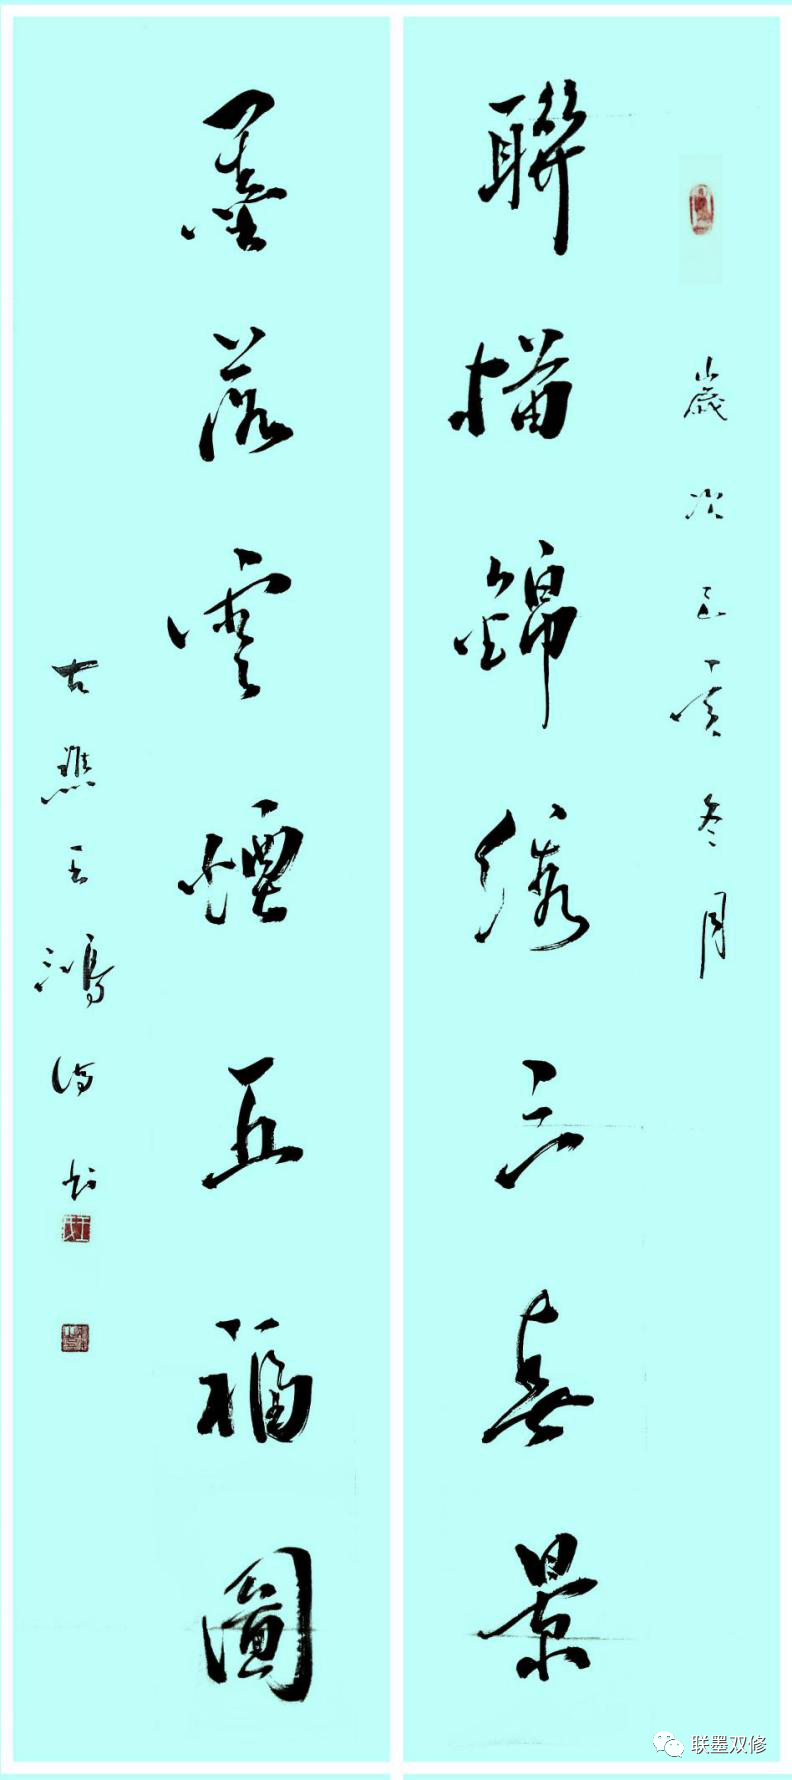 歲次己亥冬月
聯描錦繡三春景
墨落雲煙五福圖
古 王鴻 书
联墨双修